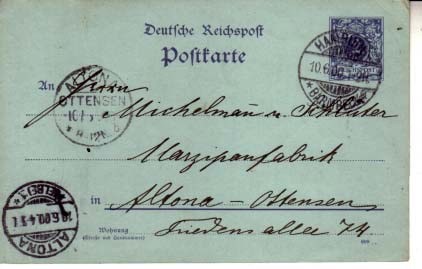 Deutsche Reichspost
Postkarte
HAMBURG
10.6.00
ALTONA
OTTENSEN
An Herrn
Michelmann u. Schlüter
Marzipanfabrik
in Altona-Ottensen
Wohnung
(Straße und Hausnummer)
Friedensallee 74
ALTONA
10.6.00